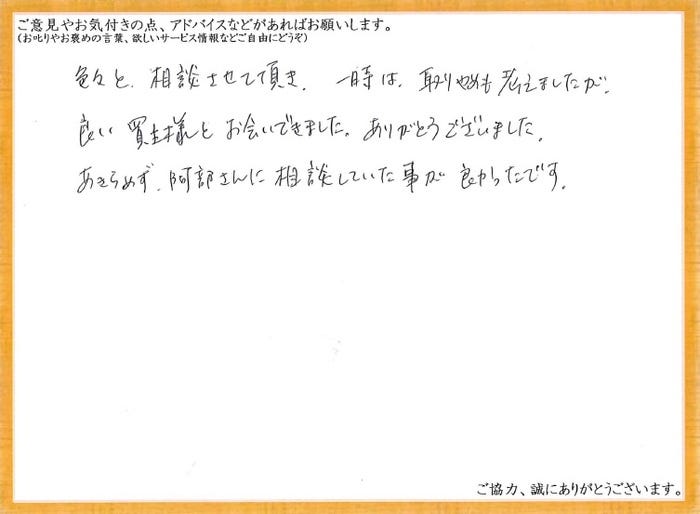 ご意見やお気付きの点、アドバイスなどがあればお願いします。
(お叱りやお褒めの言葉、欲しいサービス情報などご自由にどうぞ)
色々と、相談させて頂き、一時は、取りやめも考えましたが、
良い買主様とお会いできました。ありがとうございました。
あきらめず、阿部さんに相談していた事が良かったです。
ご協力、誠にありがとうございます。